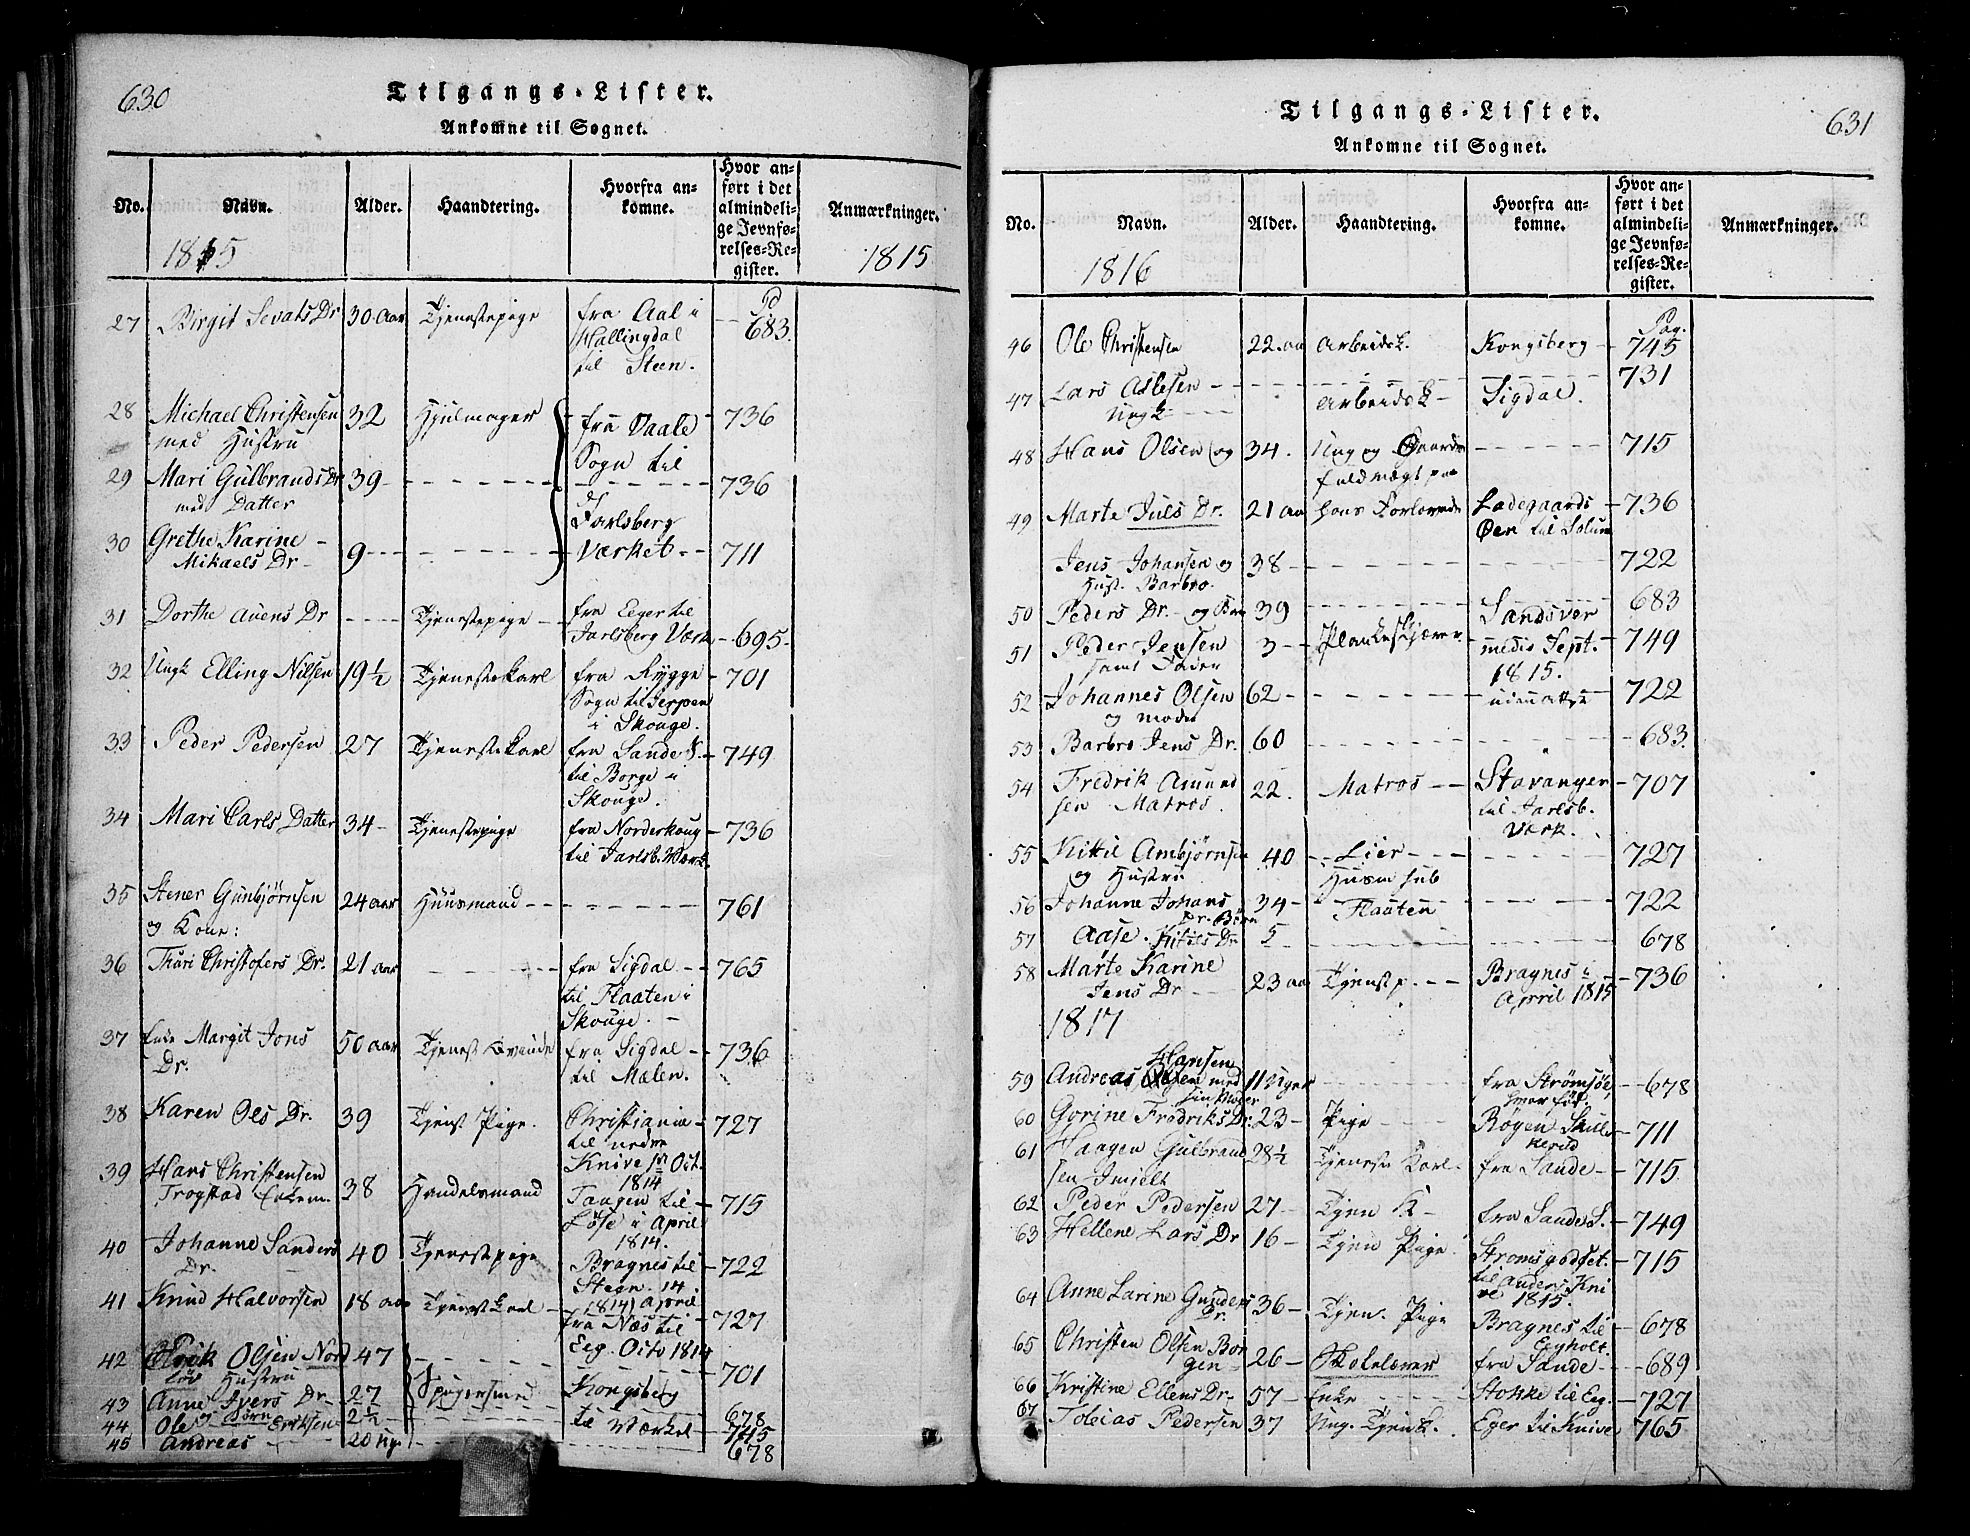 630
Tilgangs-Lister.
Ankomne til Sognet.
No. Navn. Alder. Haandtering. Hvorfra ankomne. Hvor anført i det almindelige Jevnførelses-Register. Anmærkninger.
1815 1815
27 Birgit Sevats Dr 30 Aar Tjenestepige fra Aal i P. 683.
Hallingdal
til Steen.
28 Michael Christensen 32 Hjulmager fra Vaale 736
med Hustru Sogn til
29 Mari Gulbrands Dr 39 736
med Datter
30 Grethe Karine Jarlsberg
Mikaels Dr 9 Værket 711
31 Dorthe Auens Dr Tjenestepige fra Eger til
Jarlsberg Værk 695
32 Ungk Elling Nilsen 19½ Tjenestekarl fra Rygge 701
Sogn til Serpen
i Skouge.
33 Peder Pedersen 27 Tjenestekarl fra Sande S. 749
til Borge i
Skouge.
34 Mari Carls Datter 34 Tjenestepige fra Norderhoug 736
til Jarlsb. Værk.
35 Stener Gunbjørnsen 24 aar Huusmand 761
og Kone:
36 Thuri Christofers Dr. 21 aar fra Sigdal 765
til Flaaten i
Skouge.
37 Enke Margit Jons 50 aar Tjenest Qvinde fra Sigdal 736
Dr. til Mælen.
38 Karen Ols Dr. 39 Tjenst Pige. Christiania 727
til nedre
Knive 1st Oct.
1814
39 Hans Christensen
Trogstad Enkem. 38 Handelsmand Tangen til 715
Løse i April
1814.
40 Johanne Sanders 40 Tjenestepige Bragnes til 722
Dr. Steen. 14
1814) April
41 Knud Halvorsen 18 aar Tjenestkarl fra Næs til 727
Eeg. Octo 1814
42 Erik Olsen Nord 47 701
løv Hustru
43 Anne Ivers Dr 27 Spigersmed Kongsberg
og Børn 678
44 Ole Eriksen 2½ til Værket 715
45 Andreas 20 Ug. 678
631
Tilgangs-Lister.
Ankomne til Sognet.
No. Navn. Alder. Haandtering. Hvorfra ankomne. Hvor anført i det almindelige Jevnførelses-Register. Anmærkninger.
1816
Pag.
46 Ole Christensen 22. aa Arbeidsk. Kongsberg 745
47 Lars Aslesen Arbeidsk Sigdal. 731
Ungk
48 Hans Olsen og 34. Ung og Gaards 715
fuldmægt paa
49 Marte Juls Dr. 21 aa hans Forlovede Ladegaards 736
Øen til Solum
Jens Johansen og 38 722
Hust. Barbro.
50 Peders Dr. og Børn 39 Sandsver 683
51 Peder Jensen 3 Plankeskjærer medio Sept. 749
samt Fader 1815.
52 Johannes Olsen 62 uden attest 722
og moder
53 Barbro Jens Dr. 60 683.
54 Fredrik Amund 22. Matros Stavanger 707
sen Matros. til Jarlsb.
Værk.
55 Kittil Ambjørnsen 40 Lier 727
og Hustru Husm sub
56 Johanne Johans 34 Flaaten 722
Dr. Børn
57 Aase Kittils Dr 5 678
58 Marte Karine Bragnes i 736
Jens Dr 23 aa Tjenstp. April 1815
1817
Hansen
59 Andreas Olsen med 11 Uger fra Strømsøe, 678
sin Moder hvor fød.
60 Gorine Fredriks Dr. 23 Pige Røgen Skulle 711
rud
61 Haagen Gulbrand 28½ Tjeneste Karl. fra Sande 715
sen Imjelt
62 Peder Pedersen 27 Tjen K fra Sande S. 749
63 Hellene Lars Dr 16 Tjen Pige Strømsgodset. 715
til Anders Kni
ve 1815.
64 Anne Larine Gunders 36 Tjen. Pige Bragnes til 678
Dr. Egholt.
65 Christen Olsen Bor 26 Skolelærer fra Sande 689
gen
66 Kristine Ellens Dr. 57 Enke Stokke til Eeg. 727
67 Tobias Pedersen 37 Ung. Tjenk. Eger til Knive 765